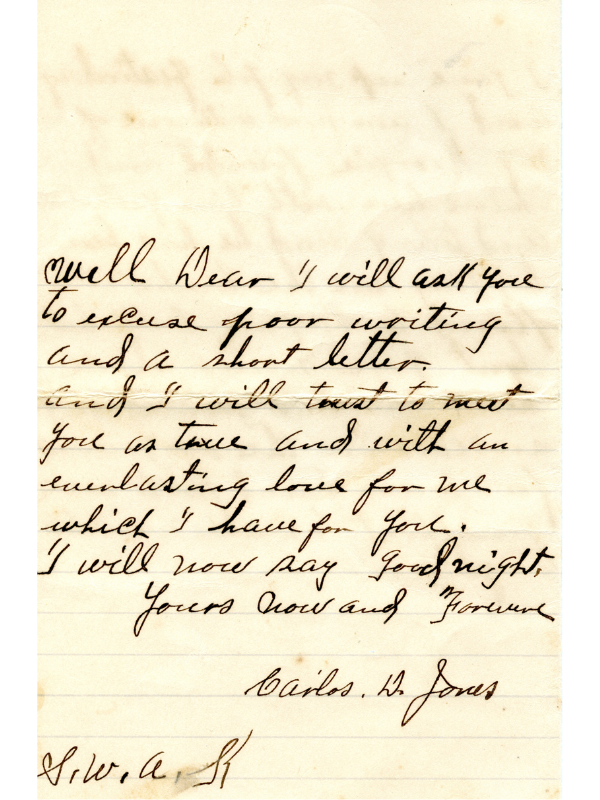 Well Dear I will ask you
to excuse poor writing
and a short letter.
and I will trust to meet
you as true and with an
everlasting love for me
which I have for you.
I will now say good night.
Yours Now and Forevere
Carlos. D. Jones
S. W. A. K